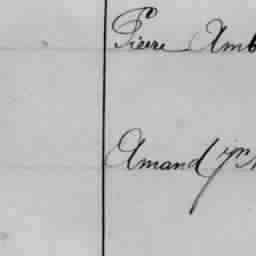 Pierre Amb
Amand